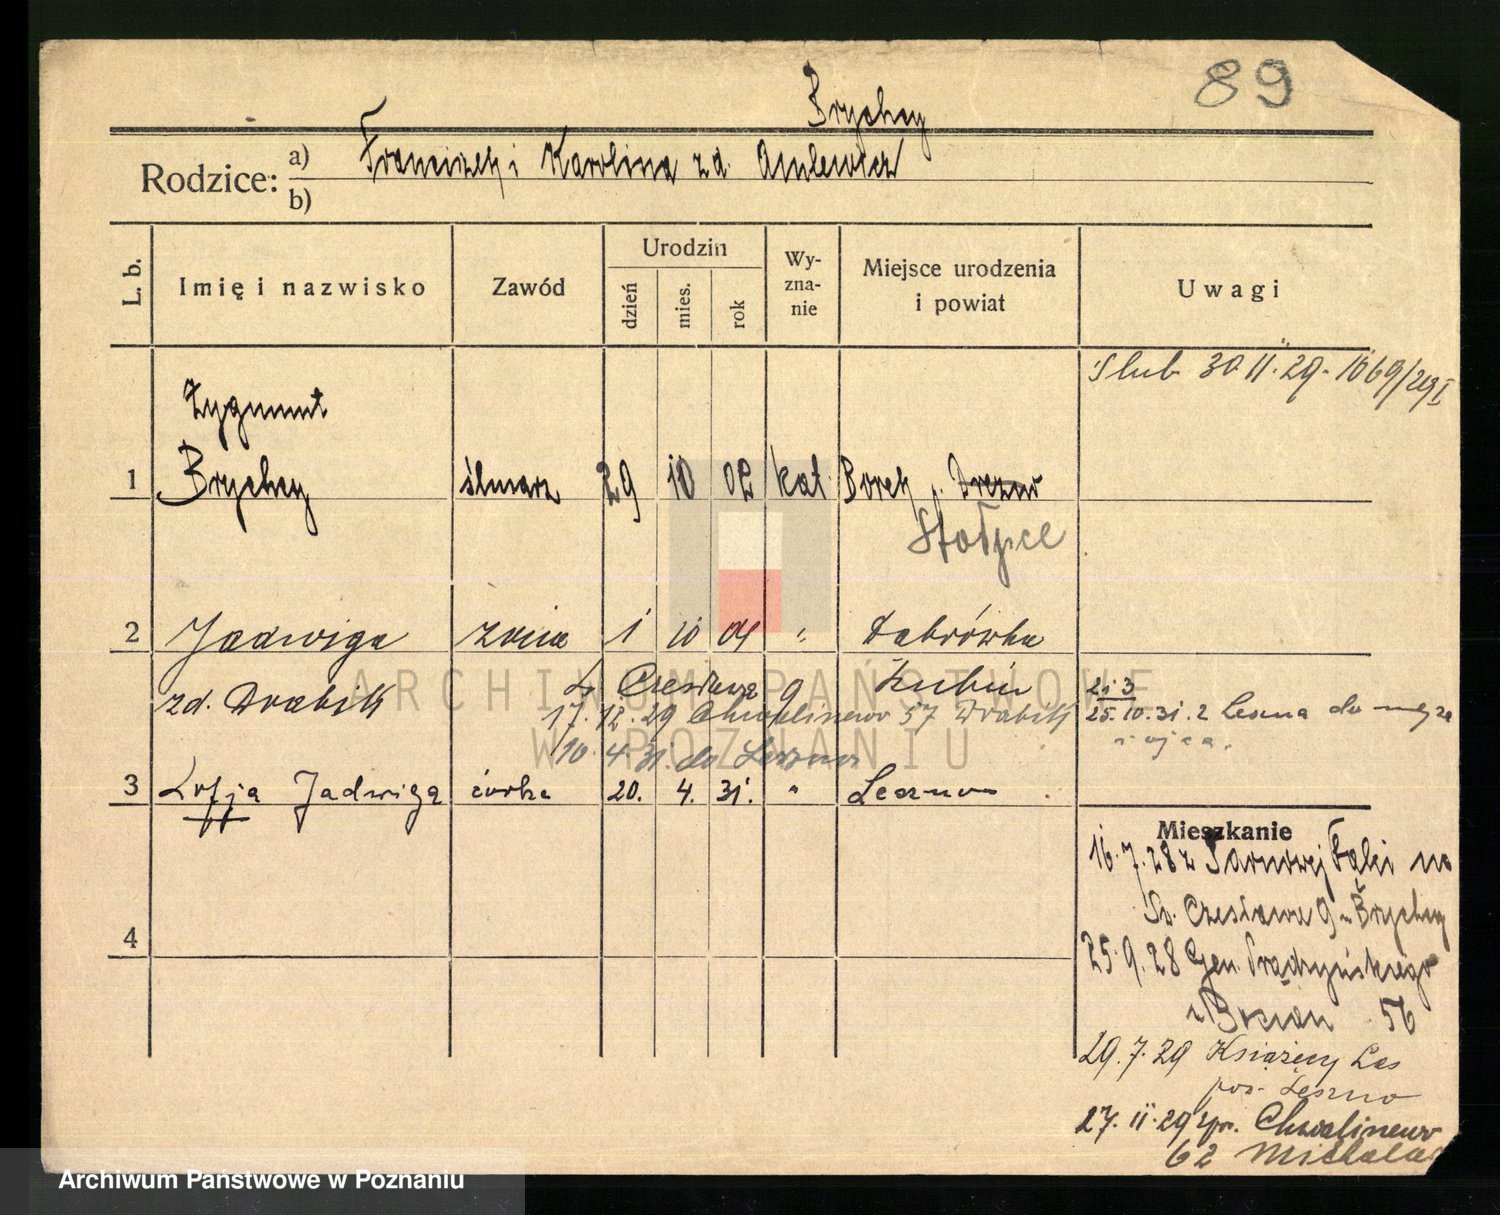 89
Brychcy
Rodzice: a) Franciszek i Karolina zd.
b)
L. b. Imię i nazwisko Zawód Urodzin dzień mies. rok Wy-zna-nie Miejsce urodzenia i powiat Uwagi
Ślub 30 11. 29
Zygmunt
1 Brychcy ślusarz 29 10 02 kat Borek p.
2 Jadwiga żona 1 10 04 " Dąbrówka
zd. Drabik Św. Czesława 9 Żnin
2 i 3
17. 12. 29 Chwaliszewo 57 Drabik 25. 10. 31. z Leszna do męża
i ojca.
10. 4. 31. do Leszna
3 Zofja Jadwiga córka 20. 4. 31. " Leszno
Mieszkanie
16. 7. 28 z Sarnowej na
Św. Czesława 9 u Brychcy
4
25. 9. 28 Gen. Prądzyńskiego
u 56
29. 7. 29 Książęcy Las
pow. Leszno
27. 11. 29 Chwaliszewo
62
ARCHIWUM PAŃSTWOWE
W POZNANIU
Archiwum Państwowe w Poznaniu